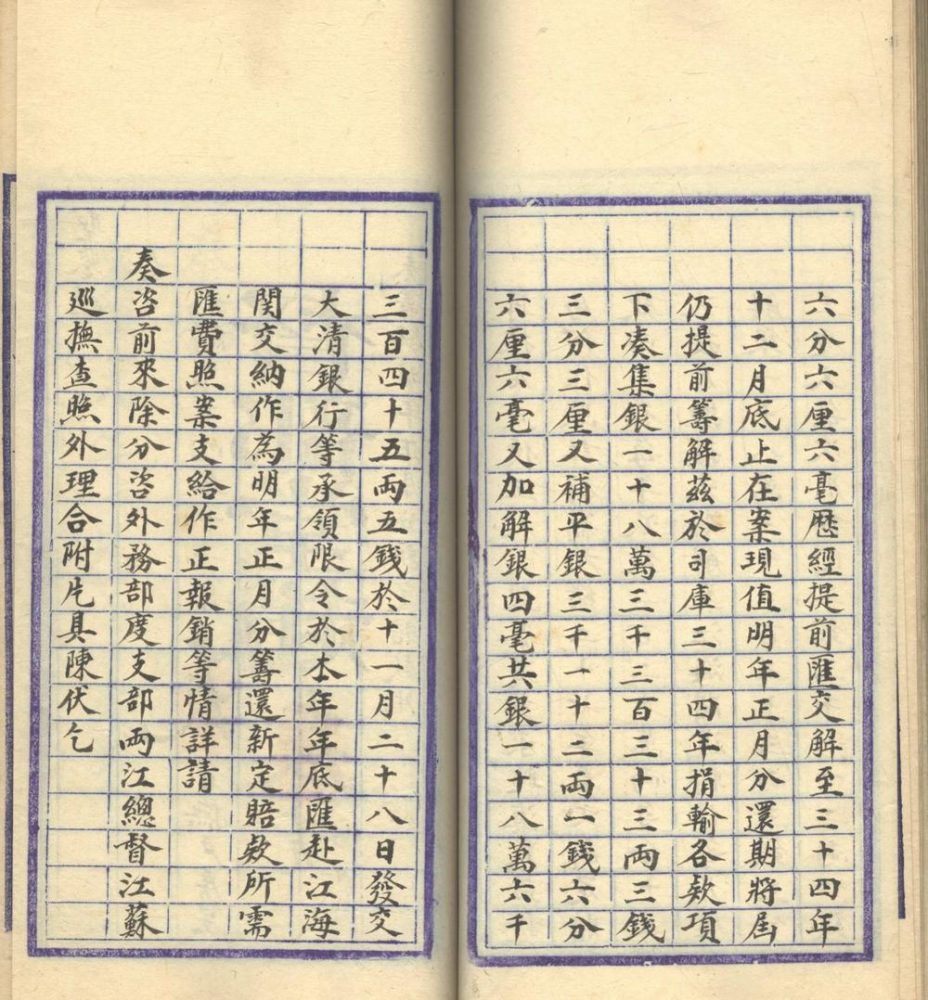 六分六厘六毫歴經提前匯交解至三十四年
十二月底止在案現值明年正月分還期將屆
仍提前籌解茲於司庫三十四年捐輸各欵項
下凑集銀一十八萬三千三百三十三兩三錢
三分三厘又補平銀三千一十二兩一錢六分
六厘六毫又加解銀四毫共銀一十八萬六千
三百四十五兩五錢於十一月二十八日發交
大清銀行等承領限令於本年年底匯赴江海
関交納作為明年正月分籌還新定賠欵所需
匯費照案支給作正報銷等情詳請
奏咨前來除分咨外務部度支部兩江總督江蘇
巡撫查照外理合附片具陳伏乞